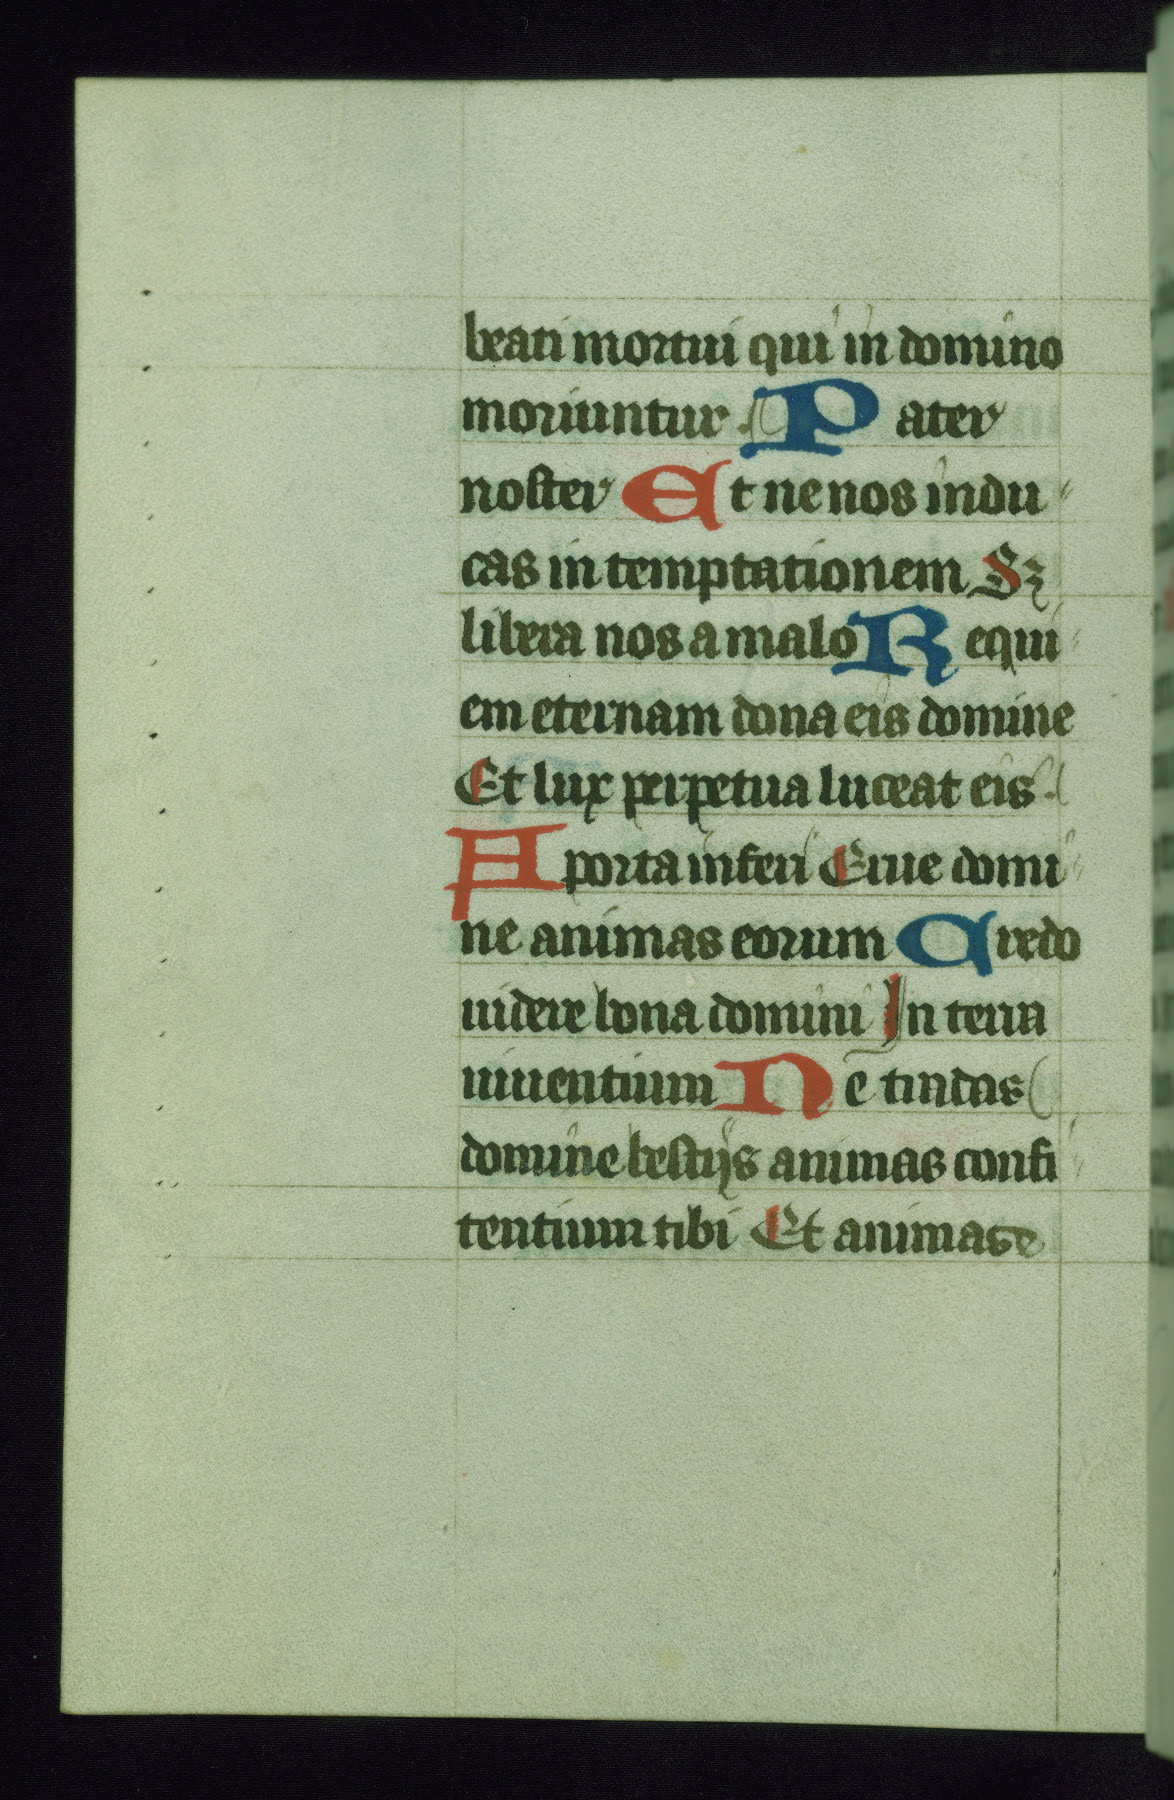 beati mortui qui in domino
moriuntur. Pater
noster Et ne nos indu
cas in temptationem Sꝫ
libera nos a malo Requi
em eternam dona eis domine
Et lux perpetua luceat eis.
A porta inferi Erue domi
ne animas eorum Credo
uidere bona domini In terra
uiuentium Ne tradas
domine bestijs animas confi
tentium tibi Et animas